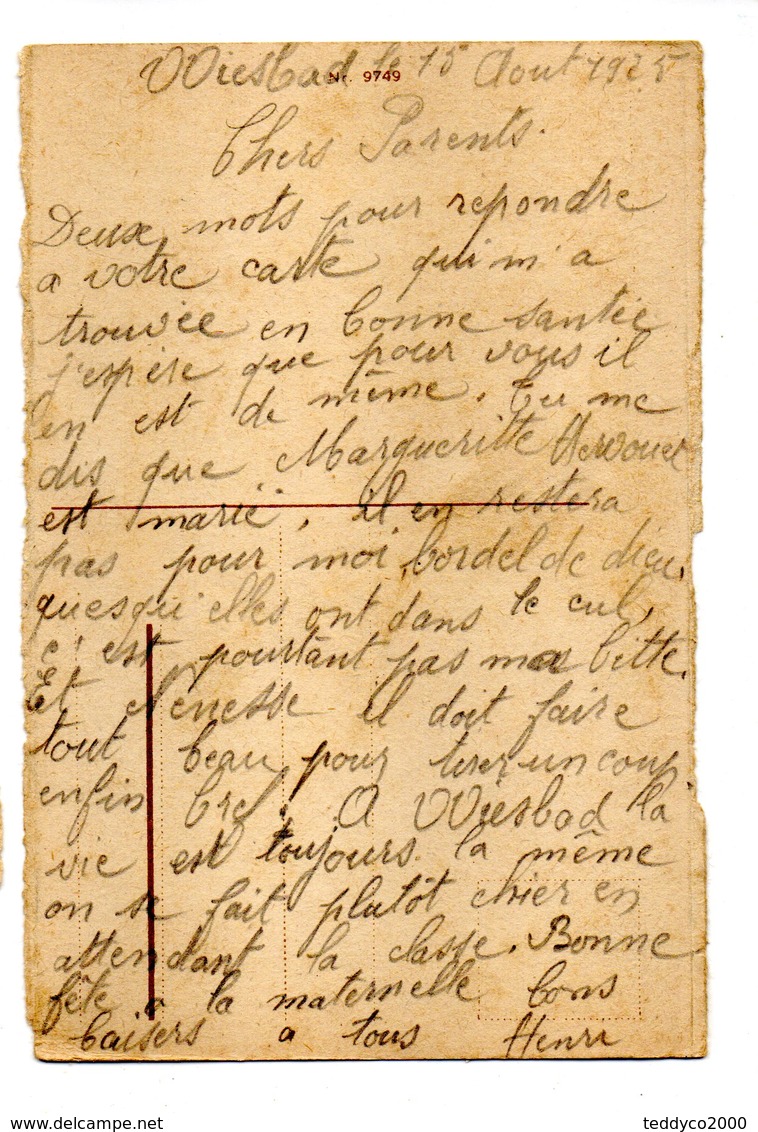 Wiesbad le 15 Aout 1925
Nr. 9749
Chers Parents.
Deux mots pour repondre
a votre carte qui m'a
trouvée en bonne santée
j'espère que pour vous il
en est de même. Tu me
dis que Margueritte Hervouet
est marié, il en restera
pas pour moi, bordel de dieu,
quesqu'elles ont dans le cul,
c'est pourtant pas ma bitte.
Et Nenesse il doit faire
tout beau pour tirer un coup
enfin bref. A Wiesbad la
vie est toujours la même
on se fait plutôt chier en
attendant la classe. Bonne
fête a la maternelle bons
baisers a tous Henri
teddyco2000